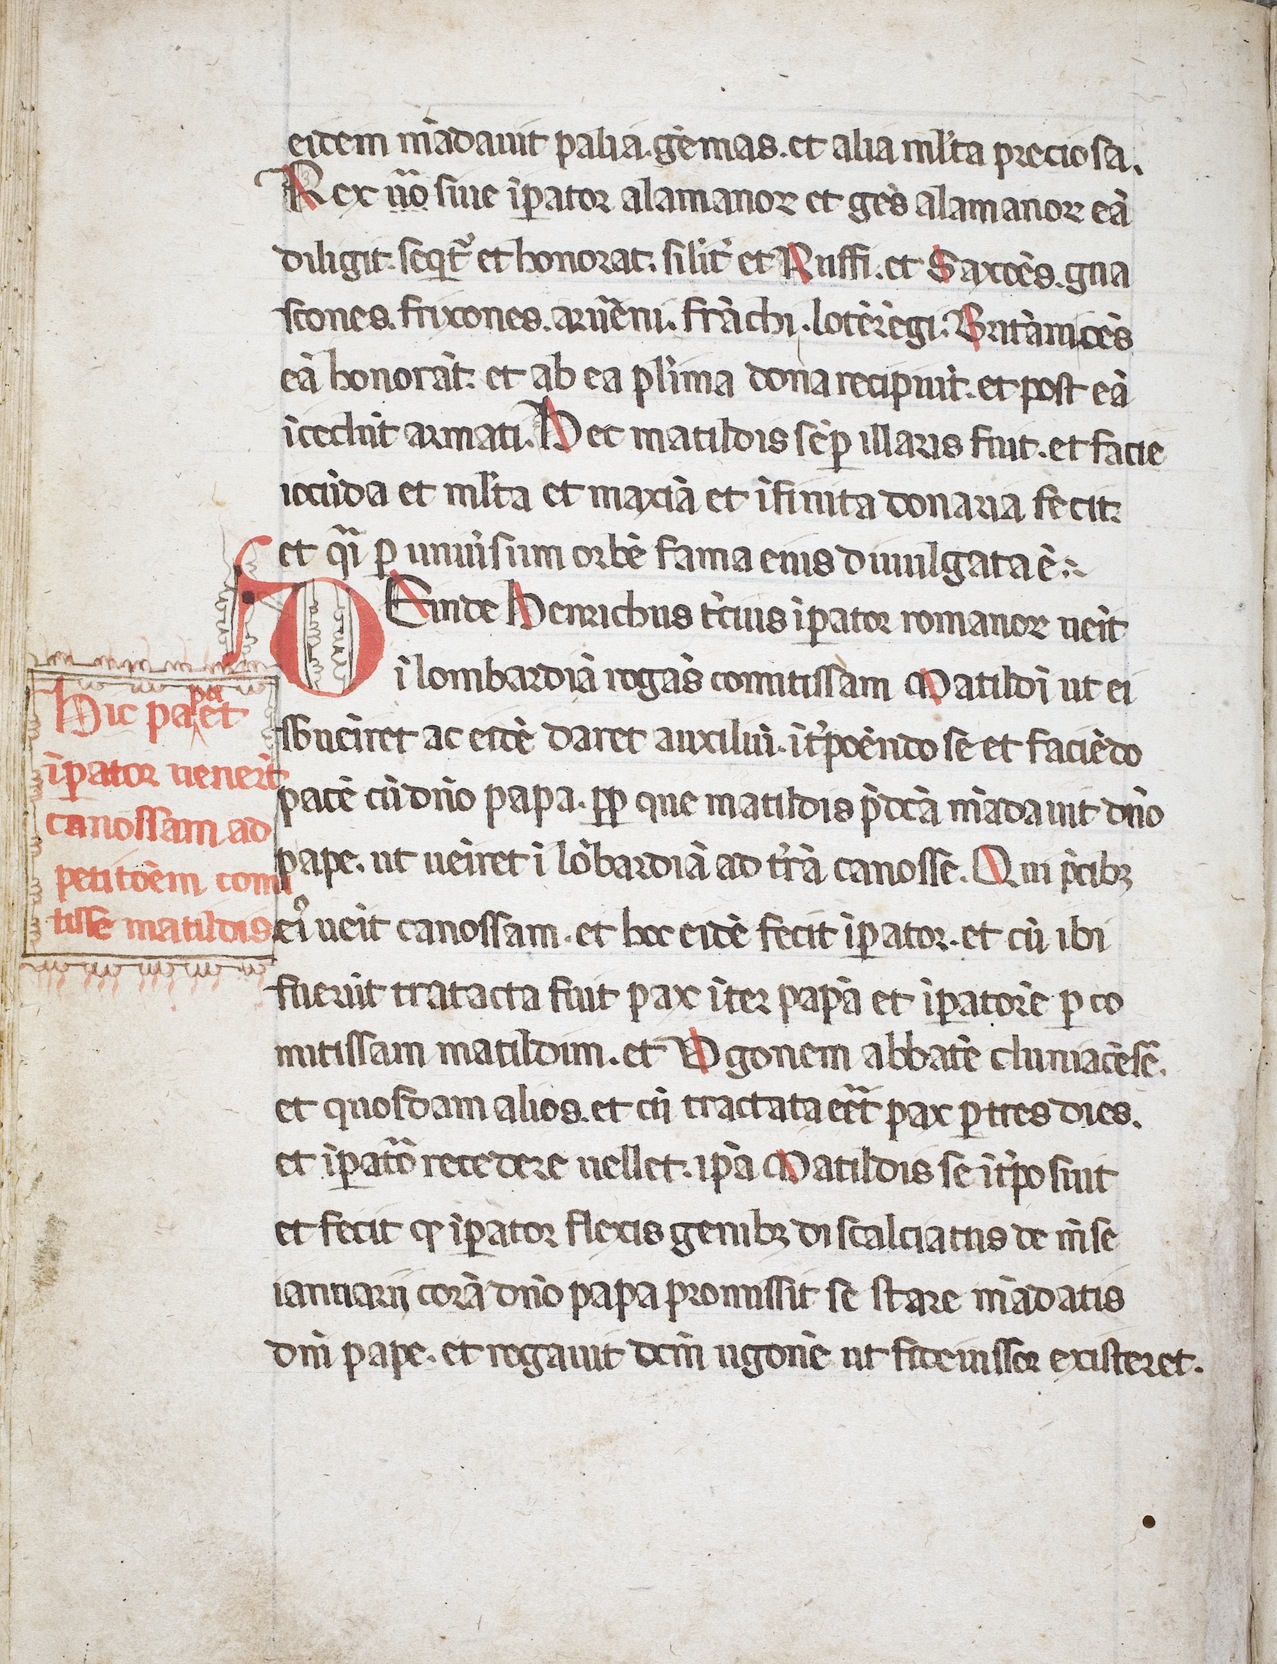 eidem mādauit palia. gēmas. et alia ml̄ta preciosa.
Rex ūo siue īꝑator alamanoꝝ et gēs alamanoꝝ eā
diligit. seqͣt᷑ et honorat. silit̄ et Russi. et Saxōēs. gua
scones. frixones. aruēni. frāchi. lotērēgi. Britānicēs
eā honorāt. et ab ea pl̄ima dona recipiūt. et post eā
īcedūt armati. Hec matildis sēꝑ illaris fuit. et facie
iocūda et ml̄ta et maxīa et īfinita donaria fecit.
et qͣi ꝑ uniūsum orbē fama eius diuulgata ē.
DEinde Henrichus t̄cius īꝑator romanoꝝ ueīt
ī lombardiā rogās comitissam Matildī ut ei
sb̄ueīret ac eidē daret auxiliū. īt̄poēndo se et faciēdo
pacē cū dn̄o papa. ꝓꝑ que matildis p̄dc̄a mādauit dn̄o
pape. ut ueīret ī lōbardiā ad t̄rā canosse. Qui p̄cibꝫ
eiꝰ ueīt canossam. et hoc eidē fecit īꝑator. et cū ibi
fuerūt tratacta fuit pax īter papā et īꝑatorē ꝑ co
mitissam matildim. et Vgonem abbatē cluniacēsē.
et quosdam alios. et cū tractata eēt̄ pax ꝑ tres dies.
et īꝑatō recedere uellet. ip̄a Matildis se īt̄posuit
et fecit ꝙ īꝑator flexis genibꝫ discalciatus de m̄se
ianuarii corā dn̄o papa promissit se stare mādatis
dn̄i pape. et rogauit dc̄m ugonē ut fideiussor existeret.
Hic papa et
īꝑator uenerūt
canossam ad
petitōēm comi
tisse matildis